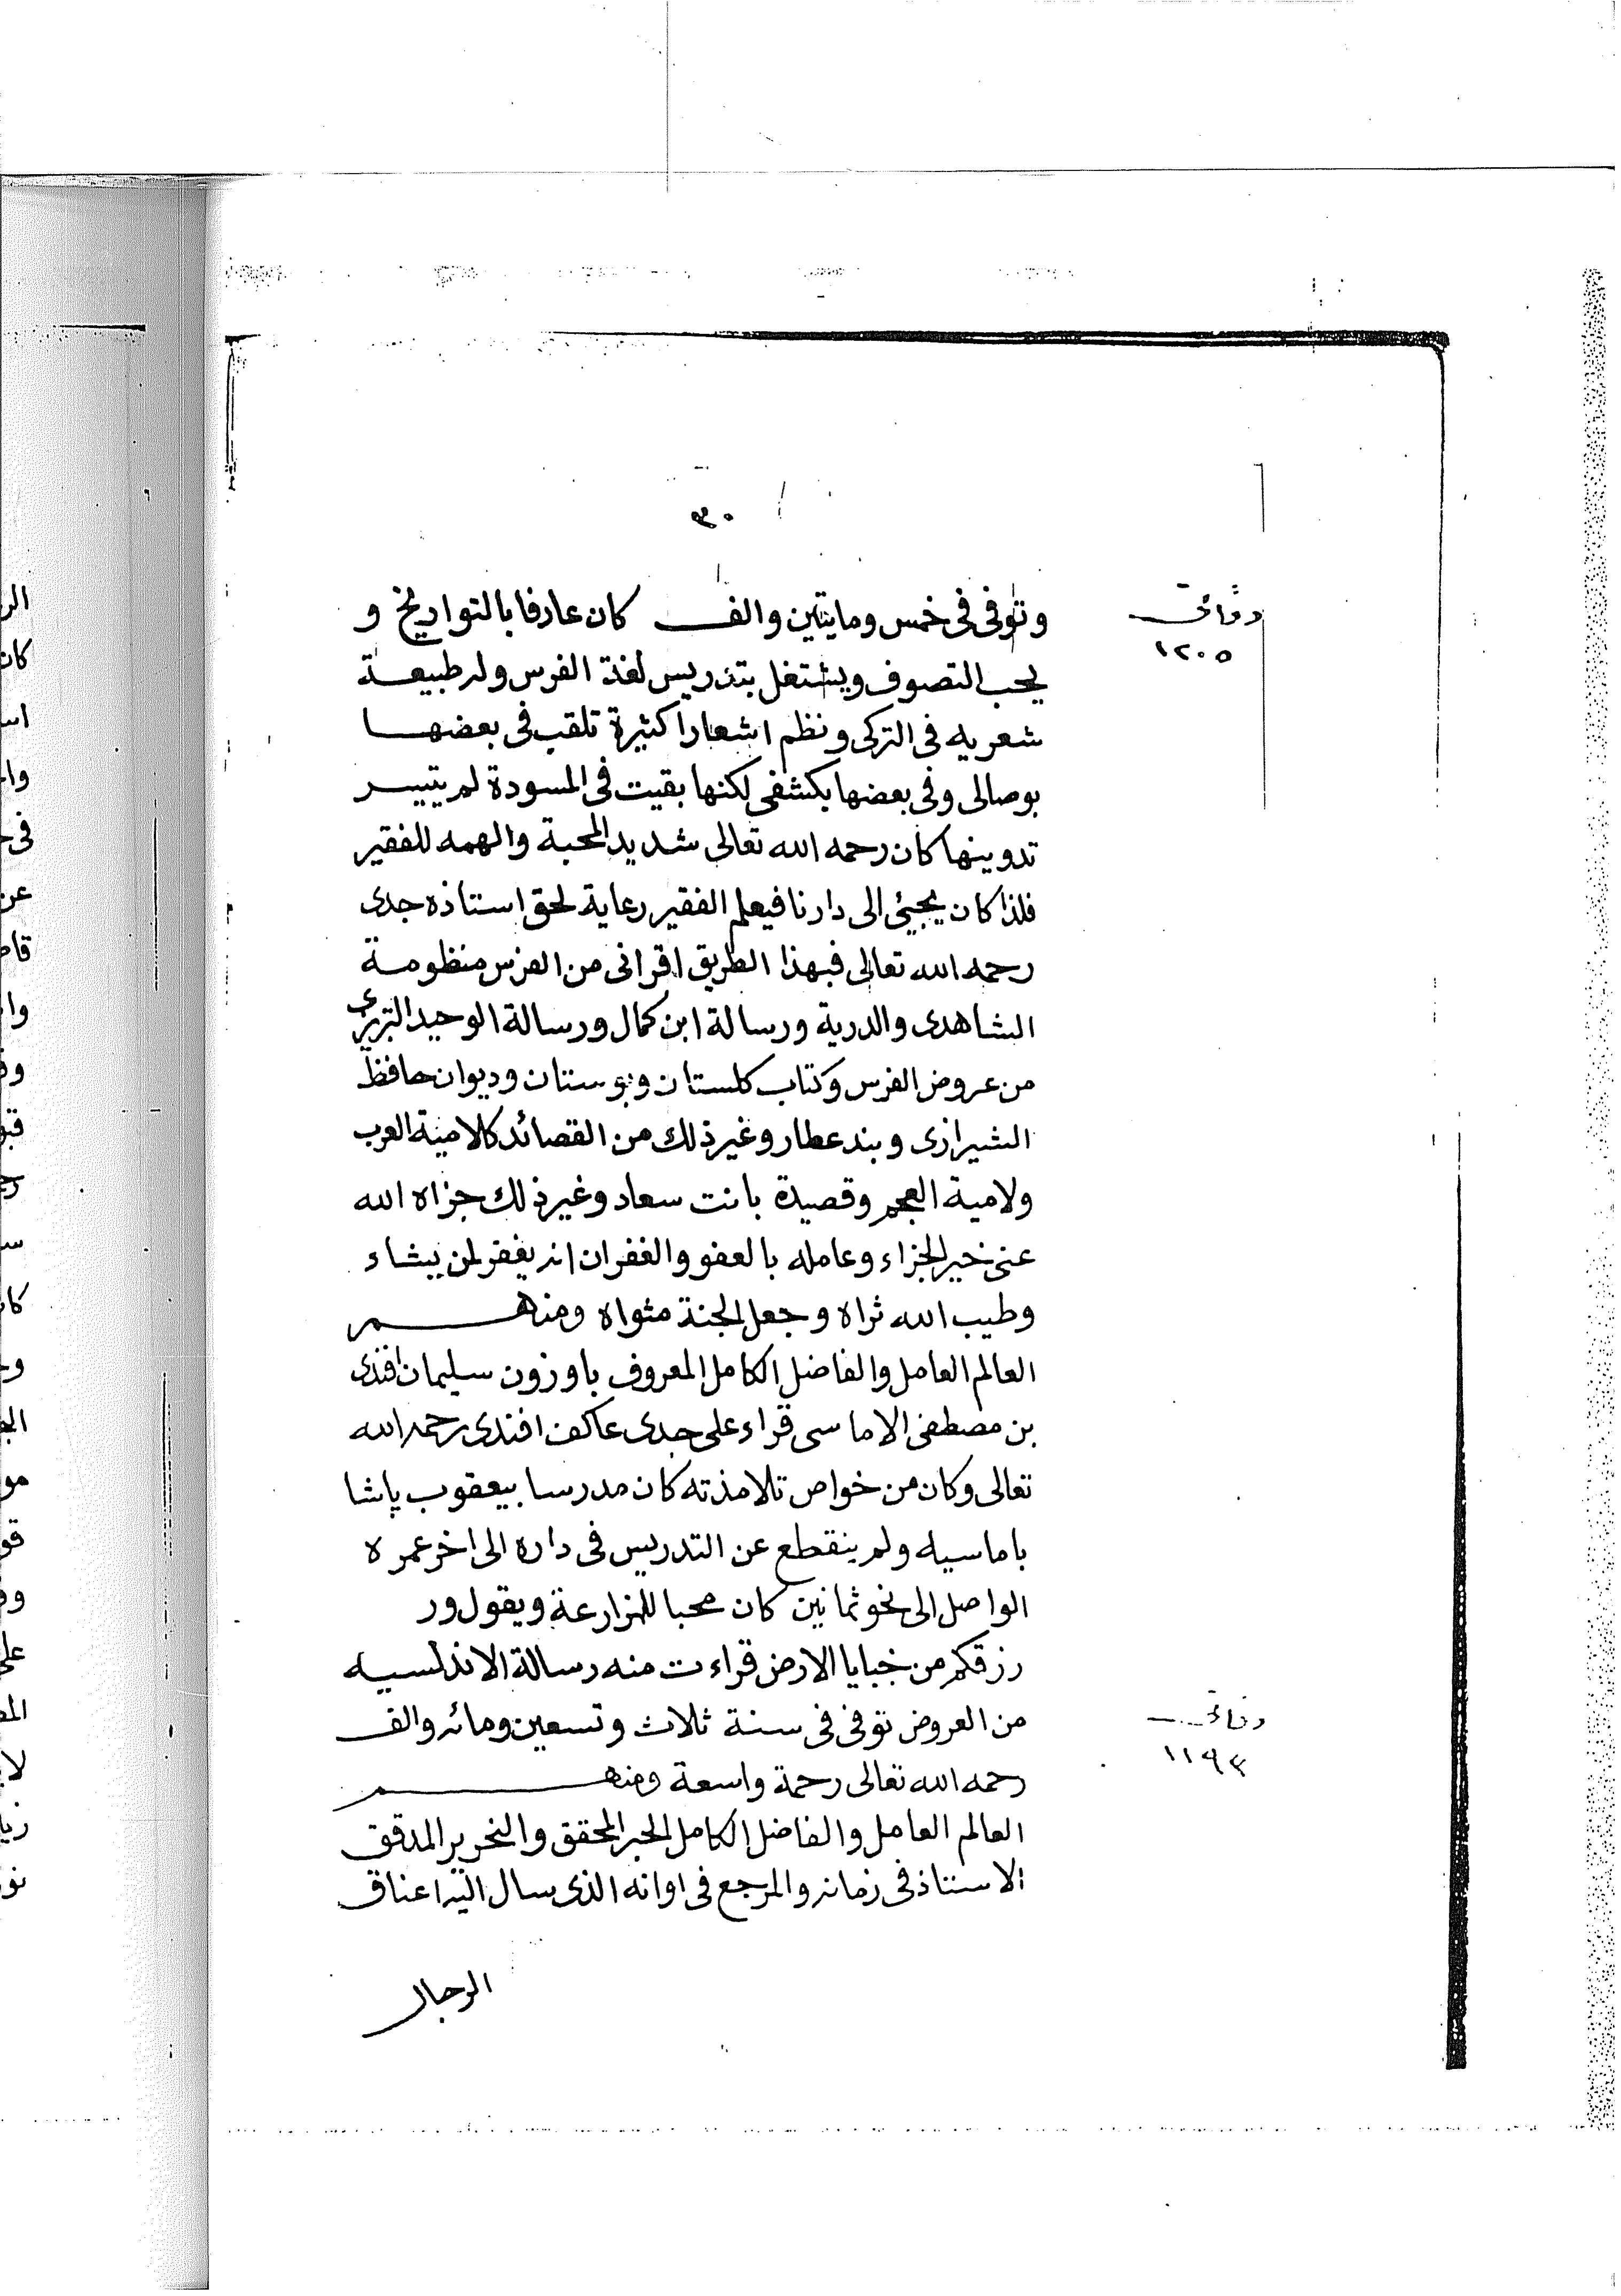 ٣٠
وتوفى فى خمس ومايتين والف كان عارفا بالتواريخ و
يحب التصوف ويشتغل بتدريس لغة الفرس وله طبيعة
شعريه فى التركى ونظم اشعارا كثيرة تلقب فى بعضها
بوصالى وفى بعضها بكشفى لكنها بقيت فى المسودة لم يتيسر
تدوينها كان رحمه الله تعالى شديد المحبة والهمه للفقير
فلذا كان يجيئ الى دارنا فيعلم الفقير رعاية لحق استاذه جدى
رحمه الله تعالى فبهذا الطريق اقرانى من الفرس منظومة
الشاهدى والدرية ورسالة ابن كمال ورسالة الوحيد التبريزى
من عروض الفرس وكتاب كلستان وبوستان وديوان حافظ
الشيرازى وبند عطار وغير ذلك من القصائد كلامية العرب
ولامية العجم وقصيدة بانت سعاد وغير ذلك جزاه الله
عنى خير الجزاء وعامله بالعفو والغفران انه يغفر لمن يشاء
وطيب الله ثراه وجعل الجنة مثواه ومنهم
العالم العامل والفاضل الكامل المعروف باوزون سليمان افندى
بن مصطفى الاماسى قراء على جدى عاكف افندى رحمه الله
تعالى وكان من خواص تلامذته كان مدرسا بيعقوب پاشا
باماسيه ولم ينقطع عن التدريس فى داره الى اخر عمره
الواصل الى نحو ثمانين كان محبا للمزارعة ويقول ور
رزقكم من خبايا الارض قراءت منه رسالة الاندلسيه
من العروض توفى فى سنة ثلاث وتسعين ومائه والف
رحمه الله تعالى رحمة واسعة ومنهم
العالم العامل والفاضل الكامل الحبر المحقق والنحرير المدقق
الاستاذ فى زمانه والمرجع فى اوانه الذى سال اليه اعناق
الرجال
١٢٠٥
١١٩٣